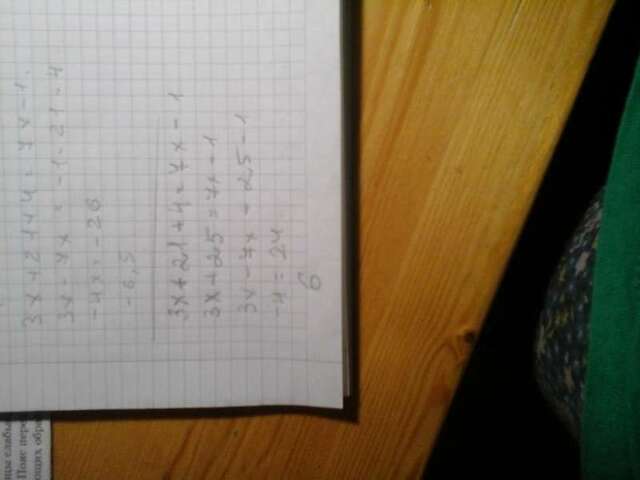 3x+21+4=7x-1.
3x-7x=-1-21-4
-4x=-26
-6,5
3x+21+4=7x-1
3x+25=7x-1
3x-7x+25-1
-4=24
6